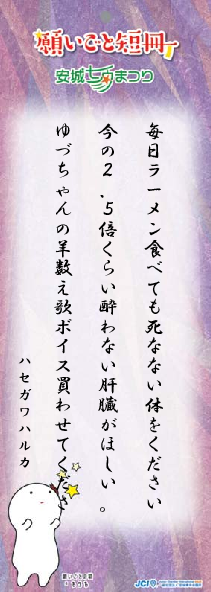 願いごと短冊
安城七夕まつり
毎日ラーメン食べても死なない体をください
今の2.5倍くらい酔わない肝臓がほしい。
ゆづちゃんの羊数え歌ボイス買わせてください
ハセガワハルカ
JCI